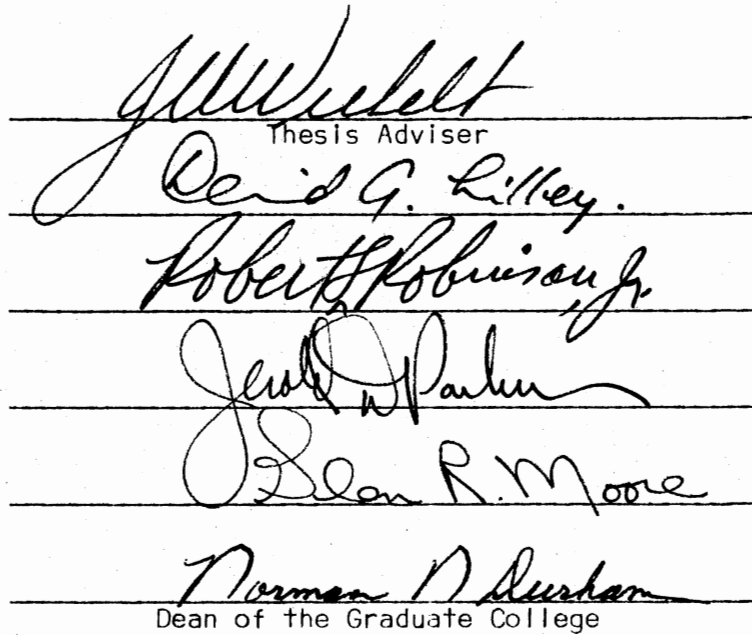 J A Wiebelt
Thesis Adviser
David G. Lilley.
Robert L Robinson, Jr.
Jerald D Parker
R. Moore
Norman N Durham
Dean of the Graduate College